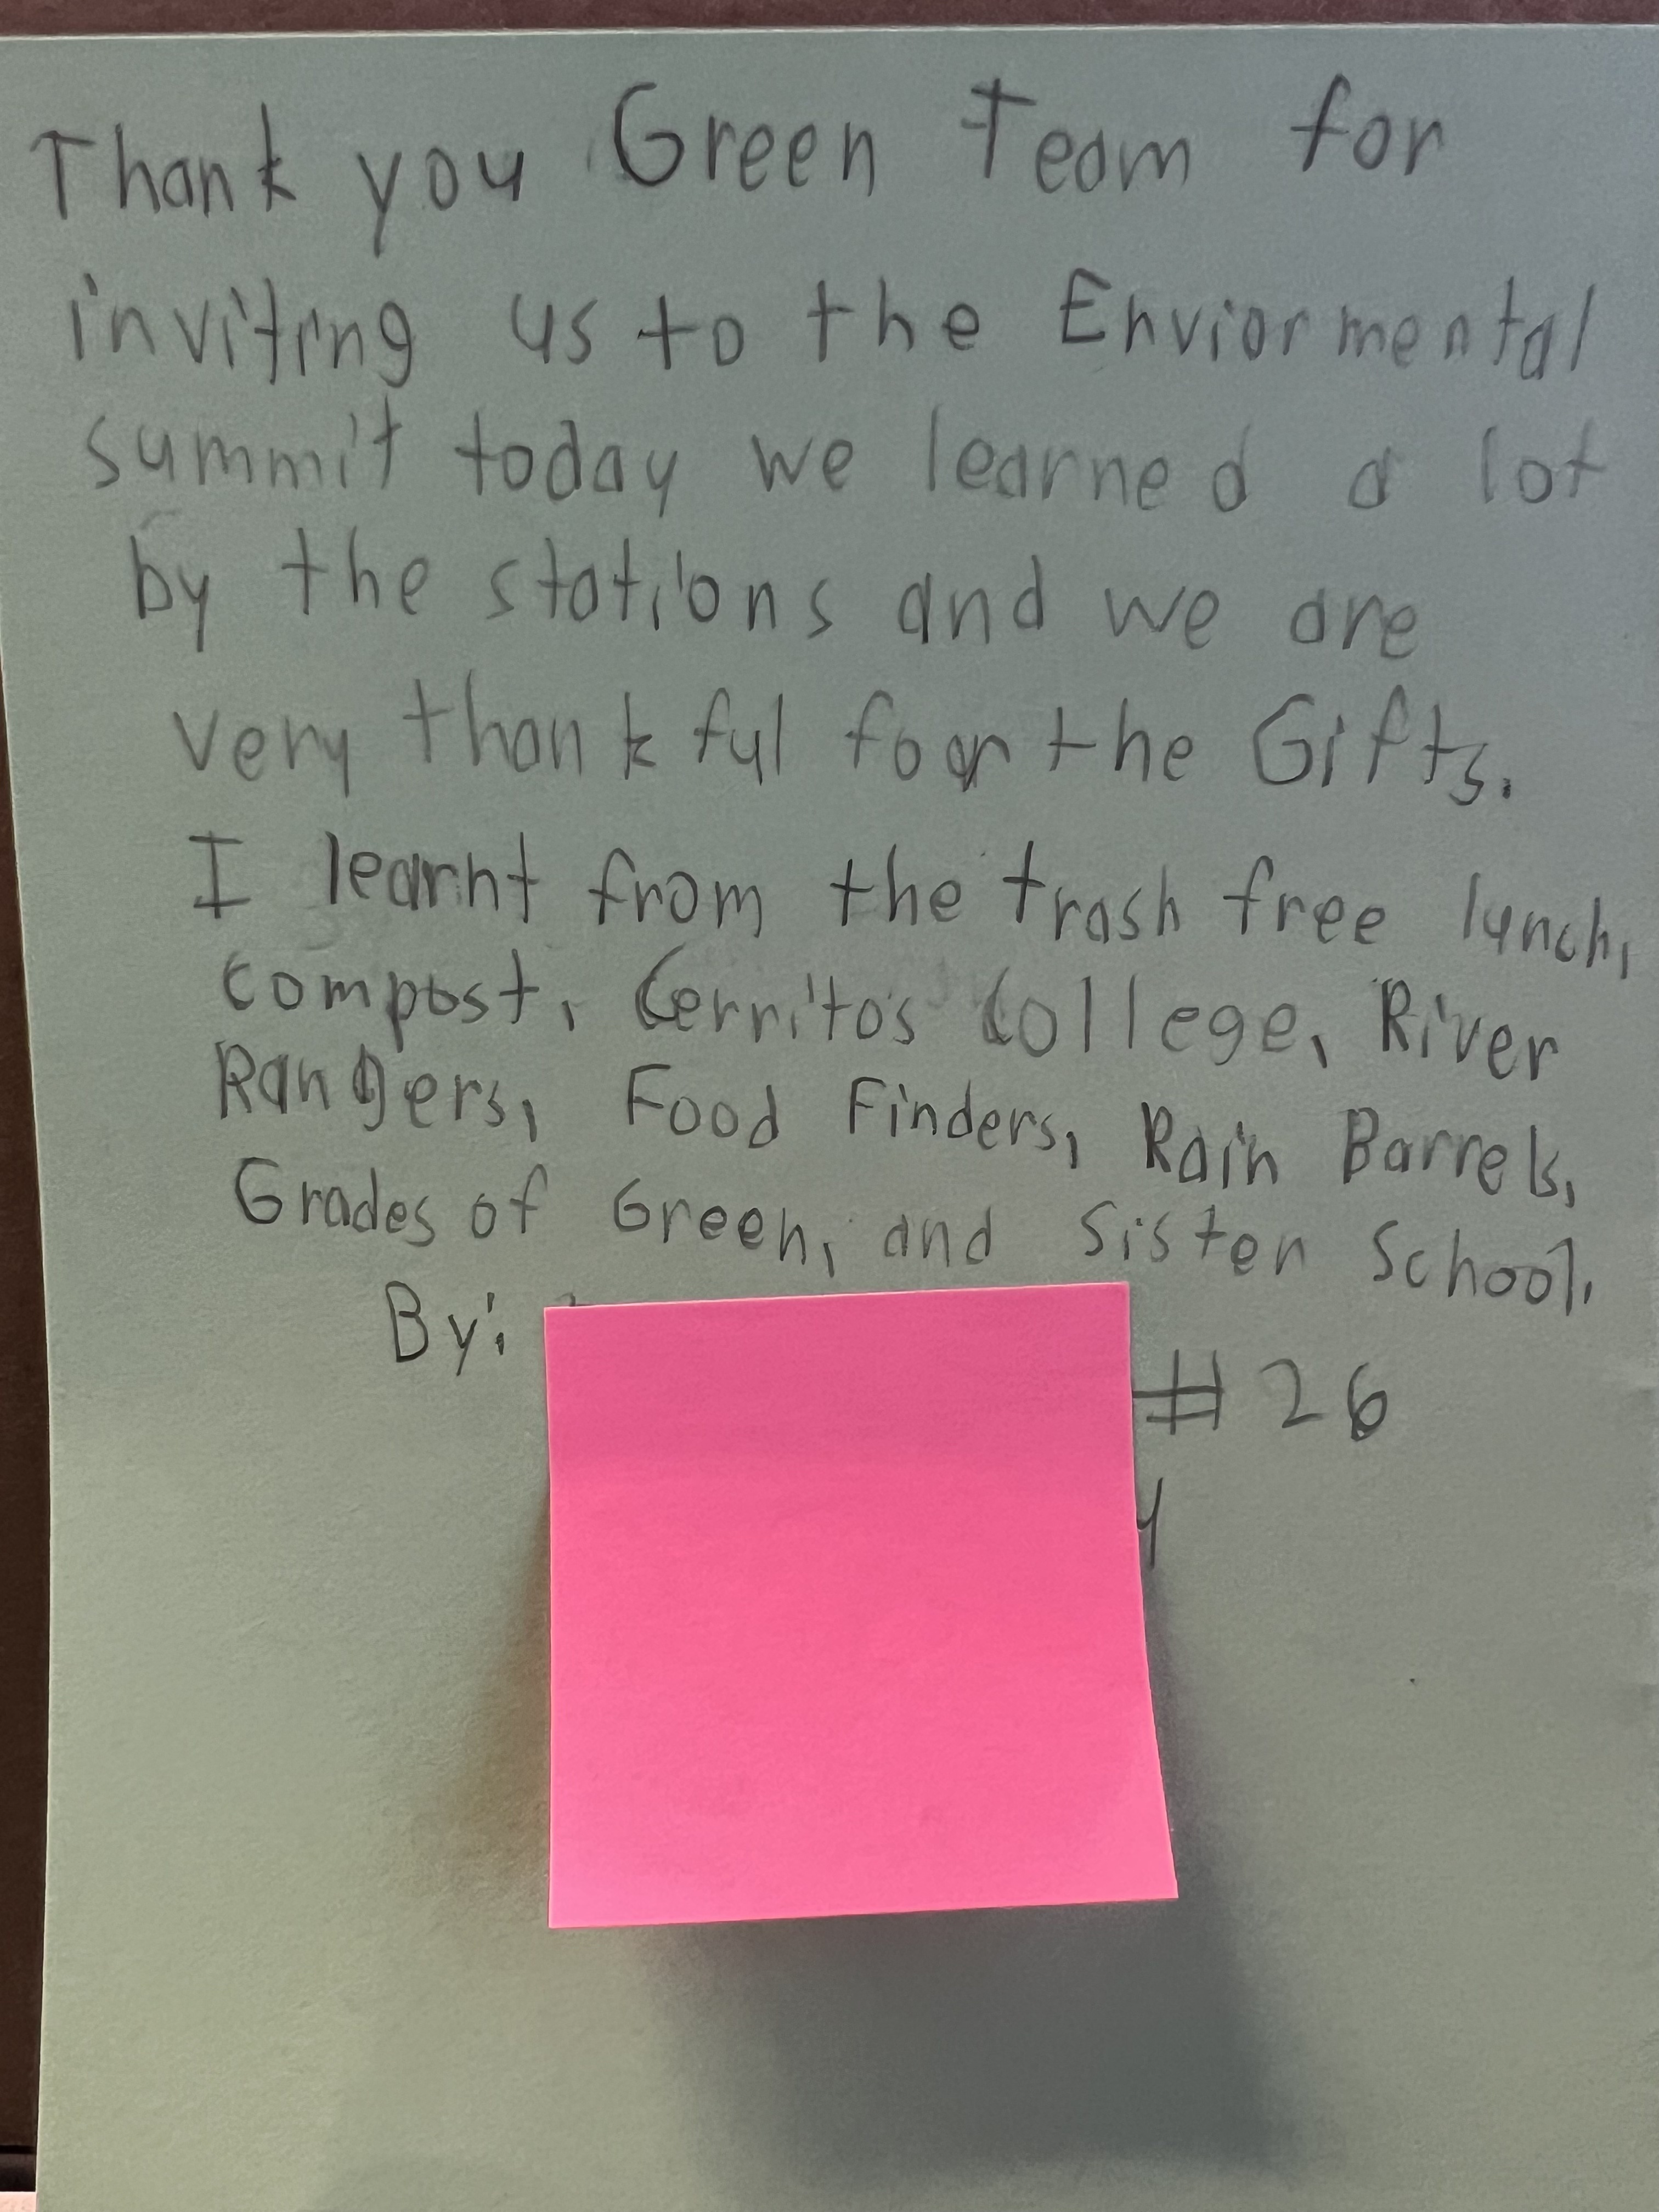 Thank you Green Team for
inviting us to the Enviormental
summit today we learned a lot
by the stations and we are
very thankful foor the Gifts.
I learnt from the trash free lunch,
compost, Cerritos College, River
Rangers, Food Finders, Rain Barrels,
Grades of Green, and Sister School.
By:
#26
y